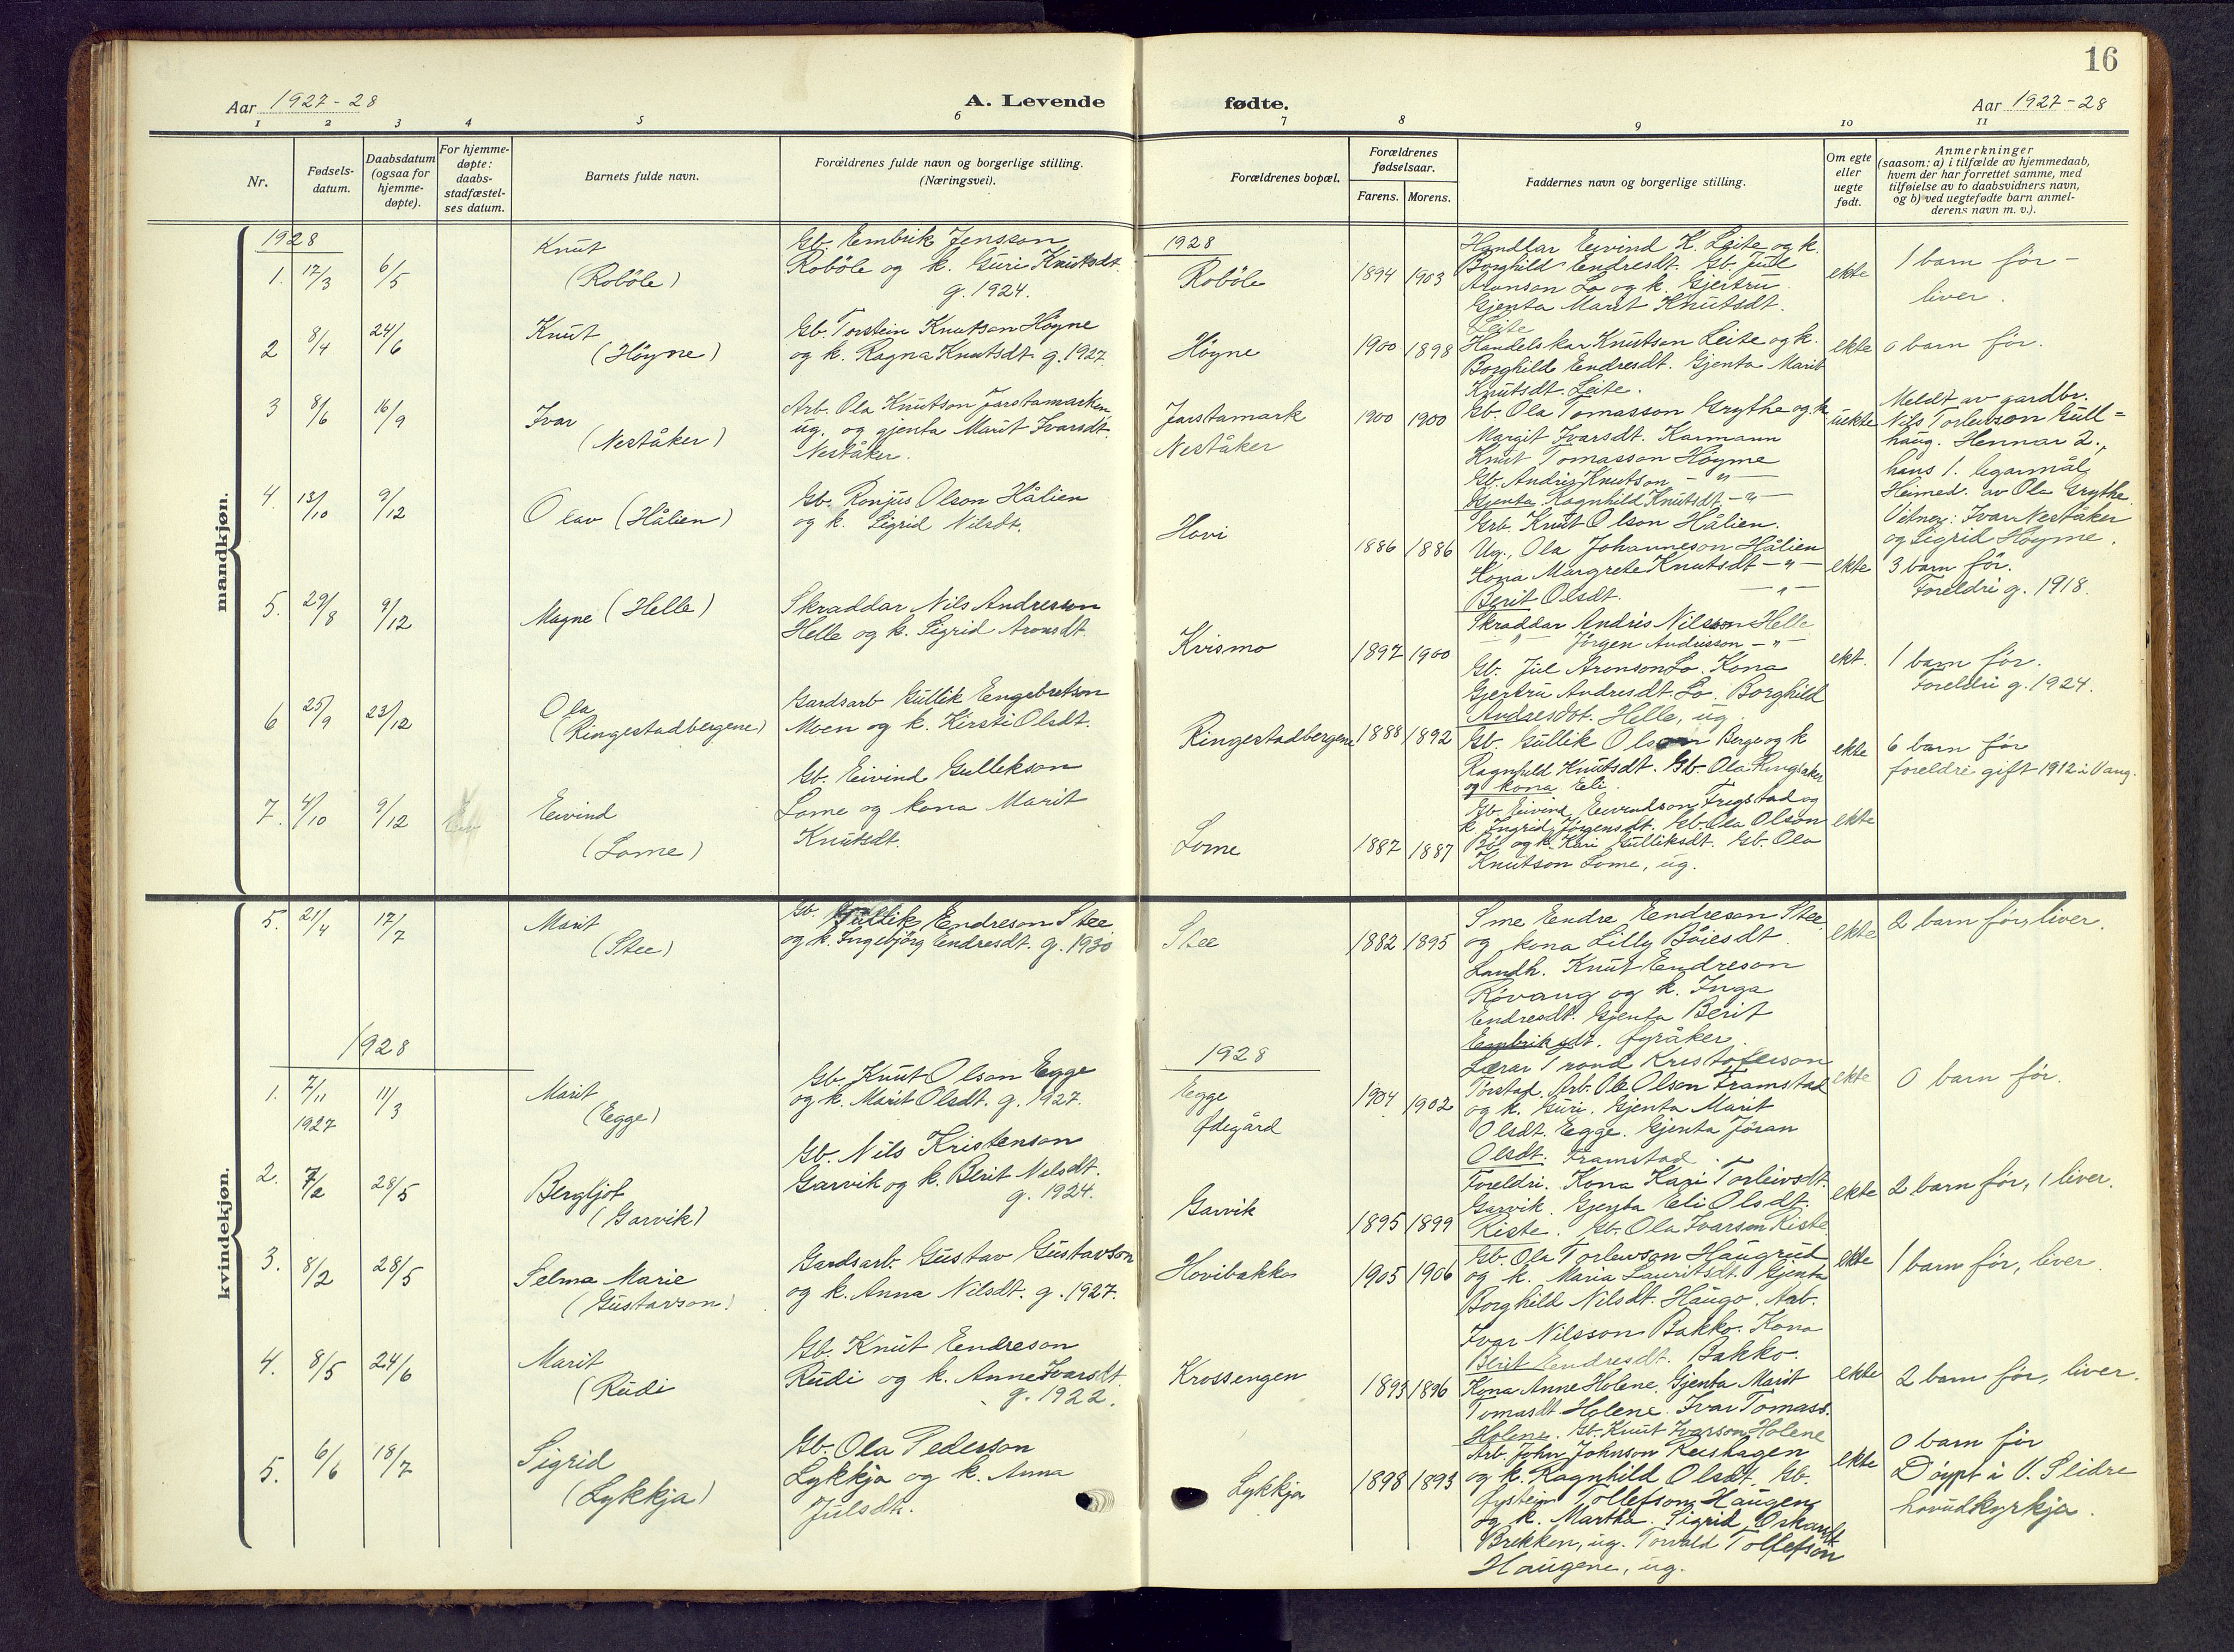 16
Aar 1927-28
A. Levende
fødte.
Aar 1927-28
1 2 3 4 5 6 7 8 9 10 11
Nr.
Fødsels-
datum.
Daabsdatum
(ogsaa for
hjemme-
døpte).
For hjemme-
døpte:
daabs-
stadfæstel-
ses datum.
Barnets fulde navn.
Forældrenes fulde navn og borgerlige stilling.
(Næringsvei).
Forældrenes bopæl.
Forældrenes
fødselsaar.
Farens. Morens.
Faddernes navn og borgerlige stilling.
Om egte
eller
uegte
født.
Anmerkninger
(saasom: a) i tilfælde av hjemmedaab,
hvem der har forrettet samme, med
tilføielse av to daabsvidners navn,
og b) ved uegtefødte barn anmel-
derens navn m. v.).
mandkjøn.
1928
1. 17/3 6/5
Knut
(Robøle)
Gb. Embrik Jensson
Robøle og k. Guri Knutsdt.
g. 1924.
1928
Robøle
1894 1903
Handlar Eivind K. Leite og k.
Borghild Endresdt. Gb. Jul
Aronson Lo og k. Gjertru
Gjenta Marit Knutsdt.
Leite
ekte
1 barn før -
liver.
2 8/4 24/6
Knut
(Høyne)
Gb. Torstein Knutson Høyne
og k. Ragna Knutsdt. g. 1927.
Høyne
1900 1898
Handelskar Knutson Leite og k.
Borghild Endresdt. Gjenta Marit
Knutsdt. Leite.
ekte
0 barn før.
3 8/6 16/9
Ivar
(Neståker)
Arb. Ola Knutson Jarstamarken,
ug. og gjenta Marit Ivarsdt.
Neståker.
Jarstamark
Neståker
1900 1900
Gb. Ola Tomasson Grythe og k.
Margit Ivarsdt. Karmann
Knut Tomasson Høyme
Gb. Andris Knutson - " -
Gjenta Ragnhild Knutsdt - " -
uekte
Meldt av gardbr.
Nils Torleivson Gull-
haug. Hennar 2.,
hans 1. legarmål.
Heimed. av Ola Grythe.
Vitner: Ivar Neståker
og Sigrid Høyme.
4. 13/10 9/12
Olav (Hålien)
Gb. Ronjus Olson Hålien
og k. Sigrid Nilsdt.
Hovi
1886 1886
Arb. Knut Olson Hålien.
Ug., Ola Johanneson Hålien
Kona Margrete Knutsdt - " -
Berit Olsdt. - " -
ekte
3 barn før.
Foreldri g. 1918.
5. 29/8 9/12
Magne (Helle)
Skraddar Nils Andresson
Helle og k. Sigrid Aronsdt.
Kvismo
1897 1900
Skraddar Andris Nilsson Helle
- " - Jørgen Andrisson - " -
Gb. Jul Aronson Lo. Kona
Gjertru Andresdt. Lo. Borghild
Andresdt. Helle, ug.
ekt.
1 barn før.
Foreldri g. 1924.
6 25/9 23/12
Ola
(Ringestadbergene)
Gardsarb Gullik Engebretson
Moen og k. Kirsti Olsdt.
Ringestadbergene
1888 1892
Gb. Gullik Olson Berge og k
Ragnhild Knutsdt. Gb. Ola Ringsaker
og kona Eli.
ekte
6 barn før
foreldri gift 1912 i Vang.
7. 4/10 9/12
Eivind
(Lome)
Gb. Eivind Gullekson
Lome og kona Marit
Knutsdt.
Lome
1887 1887
Gb. Eivind Eivindson Fregstad og
k. Ingrid Jørgensdt. Gb. Ola Olson
Bø og k. Kari Gulliksdt. Gb. Ola
Knutson Lome, ug.
ekte
kvindekjøn.
5. 21/4 17/7
Marit
(Stee)
Gb. Gullik Endreson Stee
og k. Ingebjørg Endresdt. g. 1930
Stee
1882 1895
Sme Endre Endreson Stee
og kona Lilly Bøiesdt
Landh. Knut Endreson
Røvang og k. Inga
Endresdt. Gjenta Berit
Embriksdt. Øyråker.
ekte
2 barn før, liver.
1928
1. 7/11 1927 11/3
Marit
(Egge)
Gb. Knut Olson Egge
og k. Marit Olsdt. g. 1927.
1928
Egge
Ødegård
1904 1902
Lærar Trond Kristoferson
Torstad. Arb. Ole Olson Framstad
og k. Guri. Gjenta Marit
Olsdt. Egge. Gjenta Jøran
Olsdt. Framstad.
ekte
0 barn før.
2. 7/2 28/5
Bergljot
(Garvik)
Gb. Nils Kristenson
Garvik og k. Berit Nilsdt.
g. 1924.
Garvik
1895 1899
Foreldri. Kona Kari Torleivsdt.
Garvik. Gjenta Eli Olsdt.
Riste. Gb. Ola Ivarson Riste
ekte
2 barn før, 1 liver.
3. 8/2 28/5
Selma Marie
(Gustavson)
Gardsarb. Gustav Gustavson
og k. Anna Nilsdt. g. 1927.
Hovibakko
1905 1906
Gb. Ola Torleivson Haugrud
og k. Maria Lauritsdt. Gjenta
Borghild Nilsdt. Haugo. Arb.
Ivar Nilsson Bakko. Kona
Berit Endresdt. Bakko.
ekte
1 barn før, liver.
4. 8/5 24/6
Marit
(Rudi
Gb. Knut Endreson
Rudi og k. Anne Ivarsdt.
g. 1922.
Krossengen
1893 1896
Kona Anne Holene. Gjenta Marit
Tomasdt Holene. Ivar Tomass.
Holene. Gb. Knut Ivarson Holene
ekte
2 barn før, liver.
5. 6/6 18/7
Sigrid
(Lykkja)
Gb. Ola Pederson
Lykkja og k. Anna
Julsdt.
Lykkja
1898 1893
Arb. John Johnson Reishagen
og k. Ragnhild Olsdt. Gb.
Øystein Tollefson Haugen
og k. Martha. Sigrid Oskarsdt.
Brekken, ug. Torvald Tollefson
Haugene, ug.
ekte
0 barn før
Døypt i V. Slidre
hovudkyrkja.